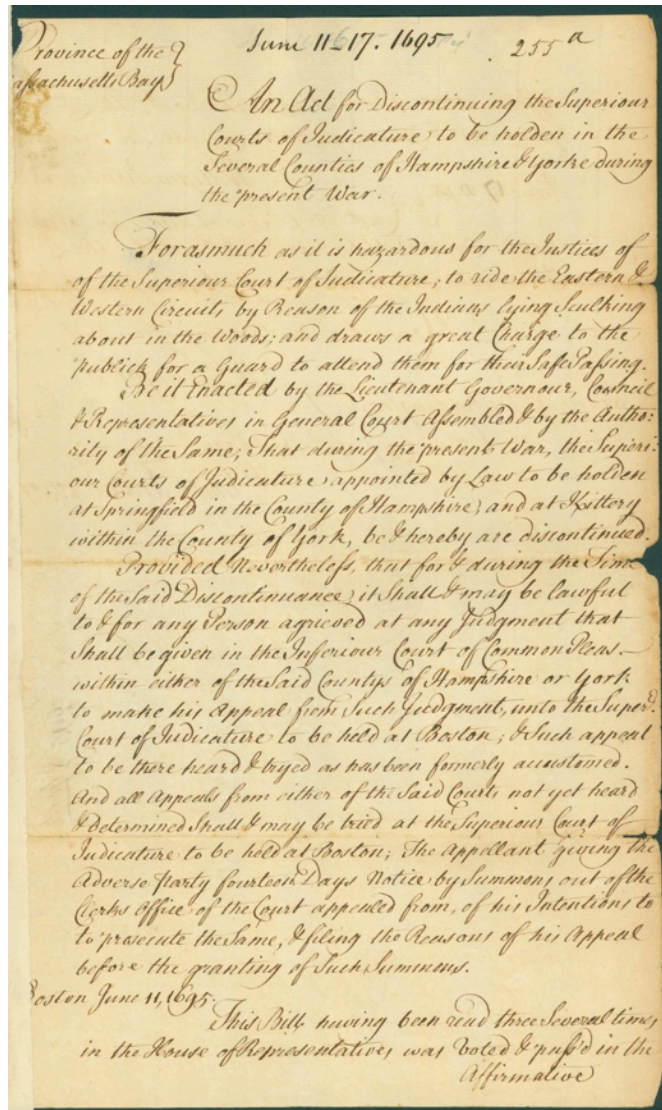 June 11-17. 1695
255 a
Province of the
assachusetts Bay
An Act for Discontinuing the Superiour
Courts of Judicature to be holden in the
Several Counties of Hampshire & Yorke during
the present War.
Forasmuch as it is hazardous for the Justices of
of the Superiour Court of Judicature, to ride the Eastern &
Western Circuits, by Reason of the Indians lying Sculking
about in the Woods; and draws a great Charge to the
publick for a Guard to attend them for their Safe Passing.
Be it Enacted by the Lieutenant Governour, Council
& Representatives in General Court Assembled & by the Autho=
rity of the Same, That during the present War, the Superi=
our Courts of Judicature appointed by Law to be holden
at Springfield in the County of Hampshire, and at Kittery
within the County of York, be & hereby are discontinued.
Provided Nevertheless, that for & during the Time
of the Said Discontinuance, it Shall & may be lawful
to & for any Person agrieved at any Judgment that
Shall be given in the Inferiour Court of Common Pleas
within either of the Said Countys of Hampshire or York
to make his Appeal from Such Judgment, unto the Super.
Court of Judicature to be held at Boston; & Such appeal
to be there heard & tryed as has been formerly accustomed.
And all Appeals from either of the Said Courts not yet heard
& determined Shall & may be tried at the Superiour Court of
Judicature to be held at Boston; The Appellant giving the
Adverse Party fourteen Days Notice by Summons out of the
Clerks Office of the Court appealed from, of his Intentions to
to prosecute the Same, & filing the Reasons of his Appeal
before the granting of Such Summons.
Boston June 11, 1695.
This Bill having been read three Several times
in the House of Representatives was Voted & pass'd in the
Affirmative